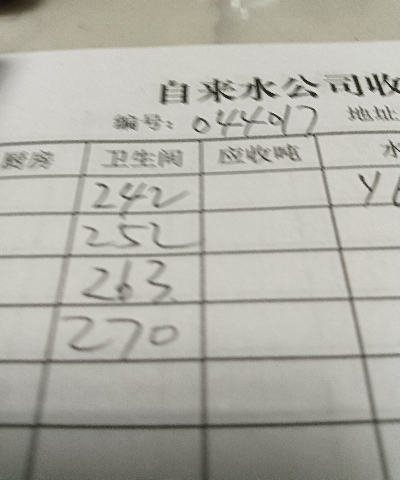 自来水公司收
编号: 044017 地址
厨房 卫生间 应收吨 水
242
252
263
270